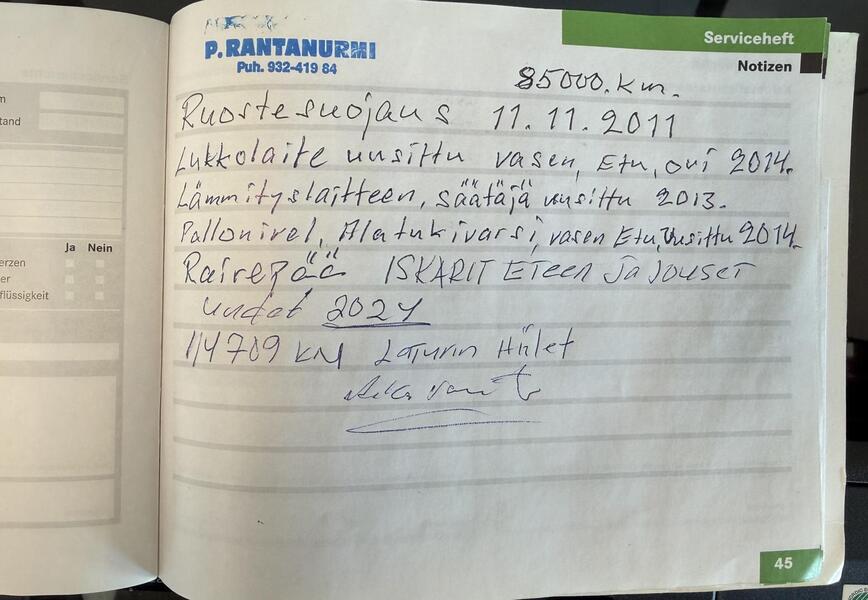 m
tand
Ja Nein
erzen
er
flüssigkeit
Serviceheft
Notizen
P.RANTANURMI
Puh. 932-419 84
85000.km.
Ruostesuojaus 11.11.2011
Lukkolaite uusittu vasen, Etu, ovi 2014.
Lämmityslaitteen, säätäjä uusittu 2013.
Pallonivel, Alatukivarsi, vasen Etu, Uusittu 2014.
ISKARIT ETeen Ja Jouset
uudet 2021
114709 KM Laturin Hiilet
45